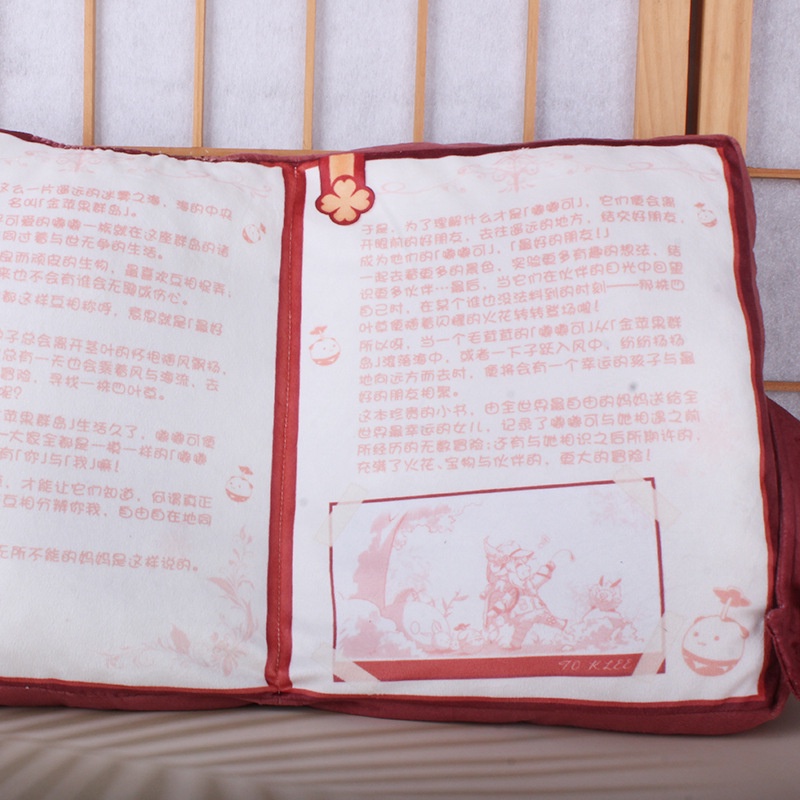 这么一片遥远的迷雾之海，海的中央
名叫「金苹果群岛」。
可爱的嘟嘟一族就在这座群岛的诸
同过着与世无争的生活。
良而顽皮的生物，最喜欢互相捉弄，
来也不会有谁会无聊或伤心。
都这样互相称呼，意思就是「最好
子总会离开茎叶的怀抱随风飘扬，
总有一天也会乘着风与海流，去
冒险，寻找一株四叶草。
呢？
苹果群岛」生活久了，嘟嘟可便
一大家全都是一模一样的「嘟嘟
有「你」与「我」嘛！
，才能让它们知道，何谓真正
互相分辨你我，自由自在地同
无所不能的妈妈是这样说的。
于是，为了理解什么才是「嘟嘟可」，它们便会离
开眼前的好朋友，去往遥远的地方，结交好朋友，
成为他们的「嘟嘟可」，「最好的朋友！」
一起去看更多的景色，实验更多有趣的想法，结
识更多伙伴…最后，当它们在伙伴的目光中回望
自己时，在某个谁也没法料到的时刻——那株四
叶草便随着闪耀的火花转转登场啦！
所以呀，当一个毛茸茸的「嘟嘟可」从「金苹果群
岛」滚落海中，或者一下子跃入风中，纷纷扬扬
地向远方而去时，便将会有一个幸运的孩子与最
好的朋友相聚。
这本珍贵的小书，由全世界最自由的妈妈送给全
世界最幸运的女儿，记录了嘟嘟可与她相遇之前
所经历的无数冒险；还有与她相识之后所期许的，
充满了火花、宝物与伙伴的，更大的冒险！
TO KLEE